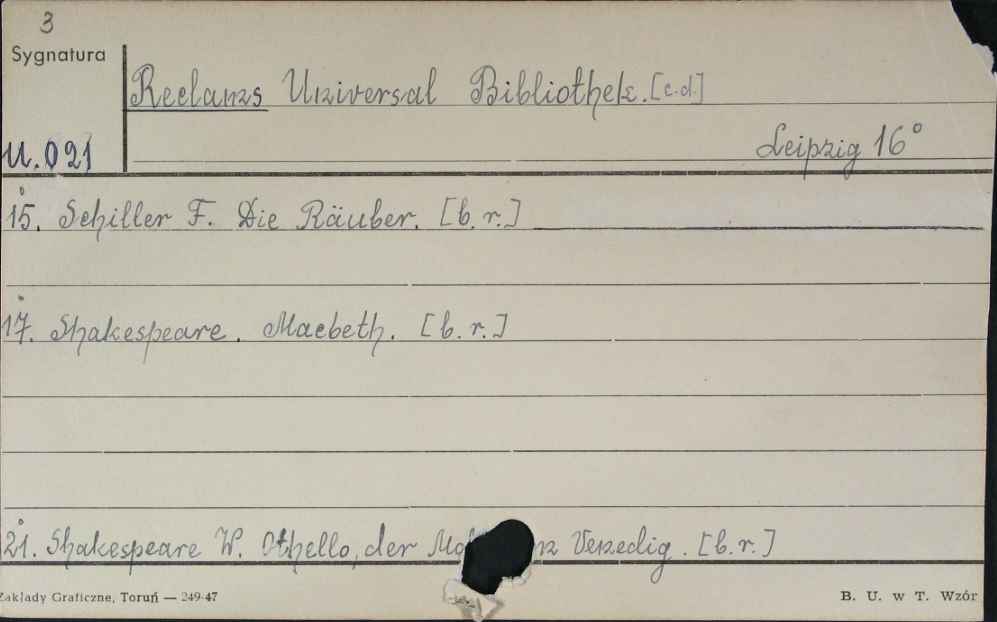 3
Sygnatura
Reclams Universal Bibliothek. [c.d.]
U.021
Leipzig 16°
15. Schiller F. Die Räuber. [b.r.]
17. Shakespeare. Macbeth. [b.r.]
21. Shakespeare W. Othello, der Venedig. [b.r.]
Zakłady Graficzne, Toruń — 249-47
B. U. w T. Wzór